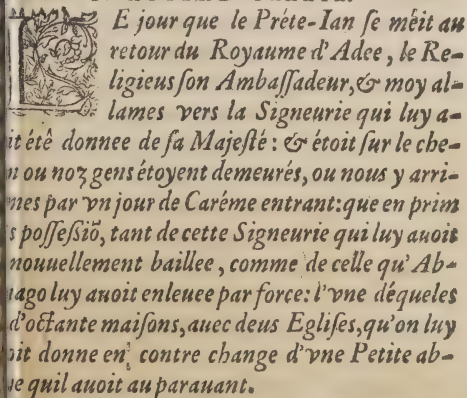 LE jour que le Prète-Ian ſe méit au
retour du Royaume d'Adee, le Re-
ligieus ſon Ambaſſadeur, & moy al-
lames vers la Signeurie qui luy a-
it étê donnee de ſa Majeſté: & étoit ſur le che-
n ou noz gens étoyent demeurés, ou nous y arri-
mes par vn jour de Caréme entrant: que en prim
s poſſeſsiō, tant de cette Signeurie qui luy auoit
nouuellement baillee, comme de celle qu'Ab-
nago luy auoit enleuee par force: l'vne déqueles
d'octante maiſons, auec deus Egliſes, qu'on luy
oit donne en contre change d'vne Petite ab-
e quil auoit au parauant.